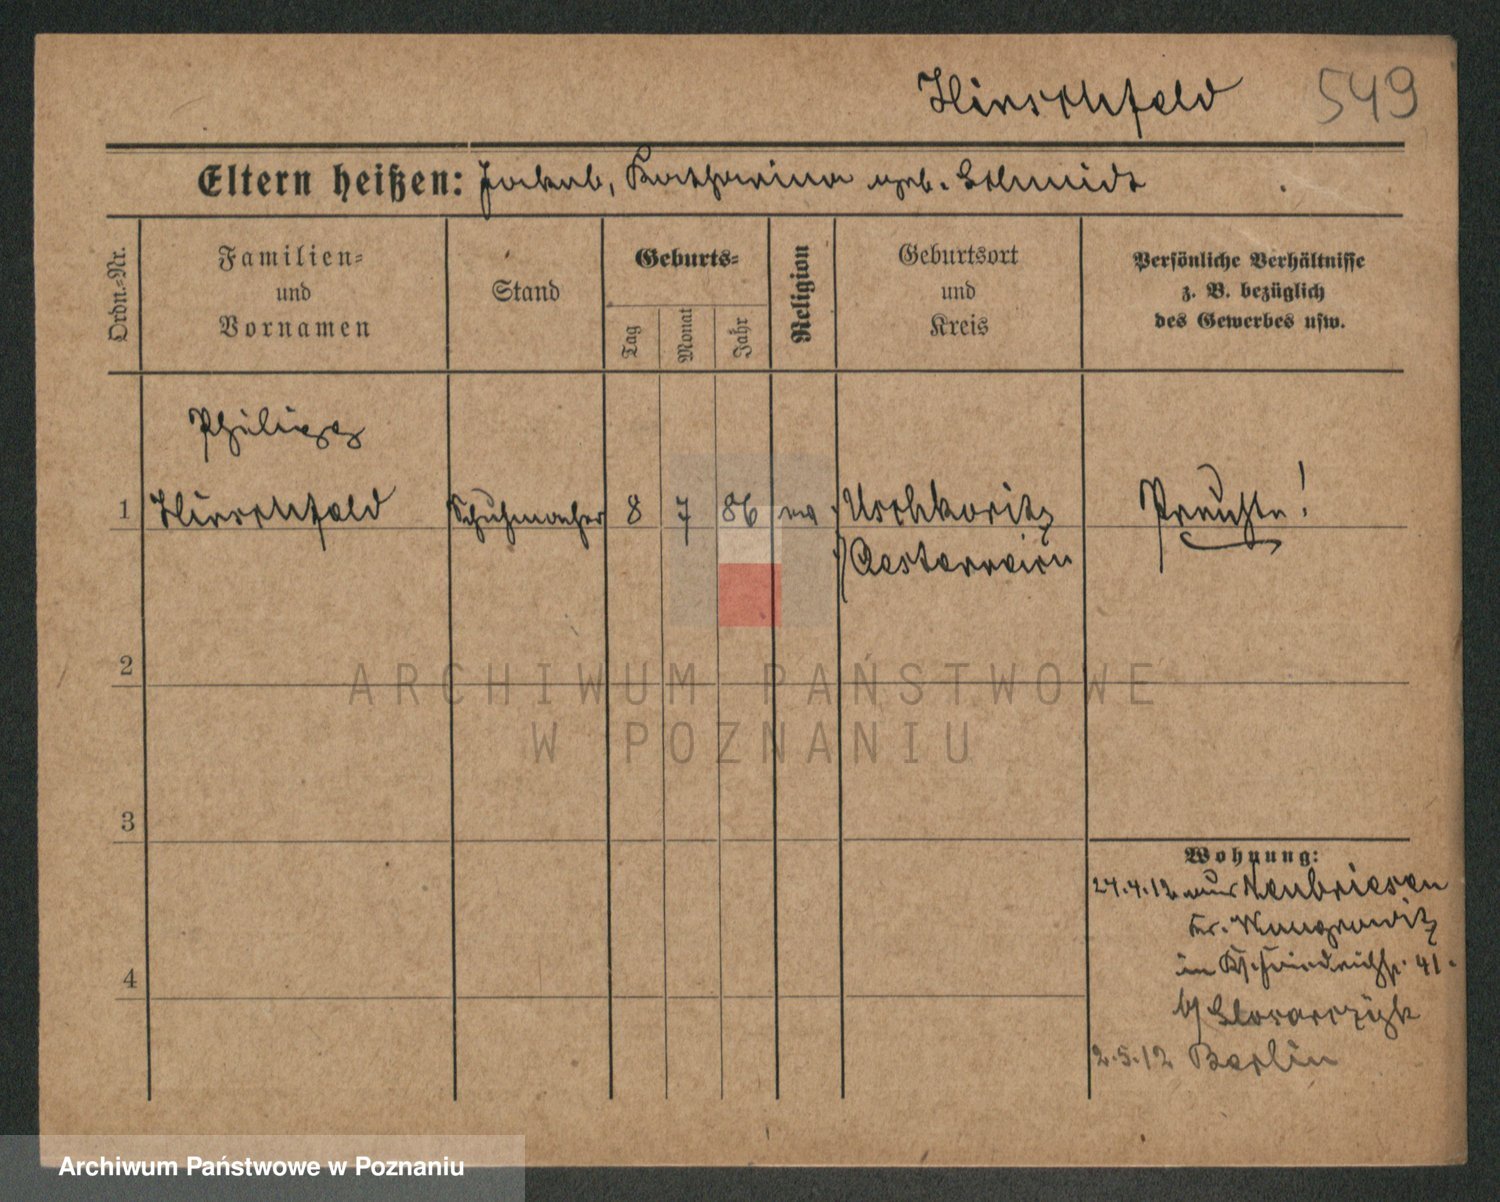 Hirschfeld 549
Eltern heißen: Jakob, Katharina geb. Schmidt
Ordn.-Nr.
Familien-
und
Vornamen
Stand
Geburts-
Tag
Monat
Jahr
Religion
Geburtsort
und
Kreis
Persönliche Verhältnisse
z. B. bezüglich
des Gewerbes usw.
Philipp
1 Hirschfeld Schuhmacher 8 7 86 ev. Uschkoritz Preuße!
/Oesterreich
2
ARCHIWUM PAŃSTWOWE
W POZNANIU
3
Wohnung:
24.4.12 aus Neubriesen
Kr. Wongrowitz
in Friedrichstr. 41.
b/
4
2.5.12 Berlin
Archiwum Państwowe w Poznaniu